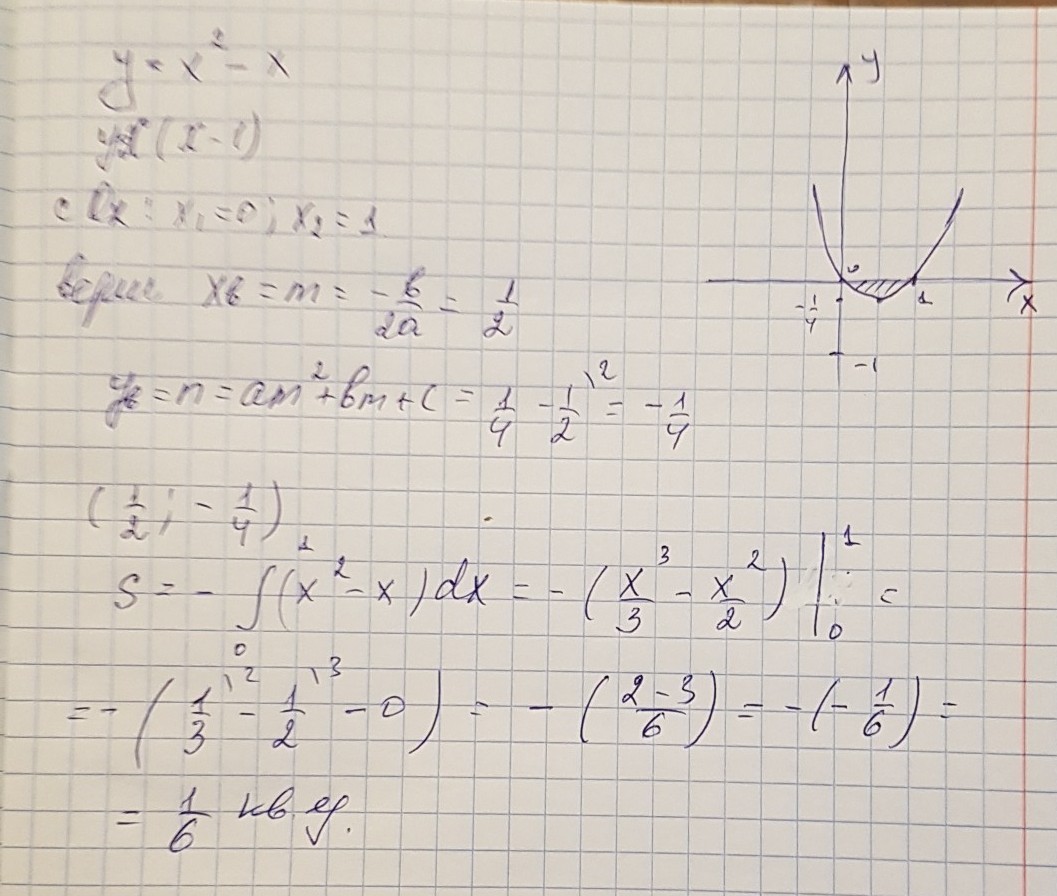 y = x² - x
y = x(x - 1)
с Ox: x₁ = 0; x₂ = 1
верш xв = m = -в/2a = 1/2
yв = n = am² + вm + c = 1/4 - 1/2\² = -1/4
(1/2; -1/4)
S = - ∫₀¹ (x² - x) dx = - (x³/3 - x²/2) |₀¹ =
= - (1/3\² - 1/2\³ - 0) = - ((2-3)/6) = - (- 1/6) =
= 1/6 кв. ед.
y
0
1
x
-1/4
-1